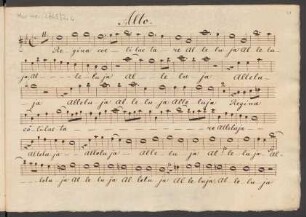 Allo.
Re gina coe - li lae ta - re Al le lu ja Al le lu
ja Al - - - le lu ja Al - le lu ja Allelu -
ja Allelu ja Al le lu ja Allelu ja Regina
coe li lae ta - - - - - re Alleluja -
Alleluja - Alleluja - Alle lu ja Al le lu ja Al -
lelu ja Al le lu ja Al lelu ja Al le luja Al le lu ja